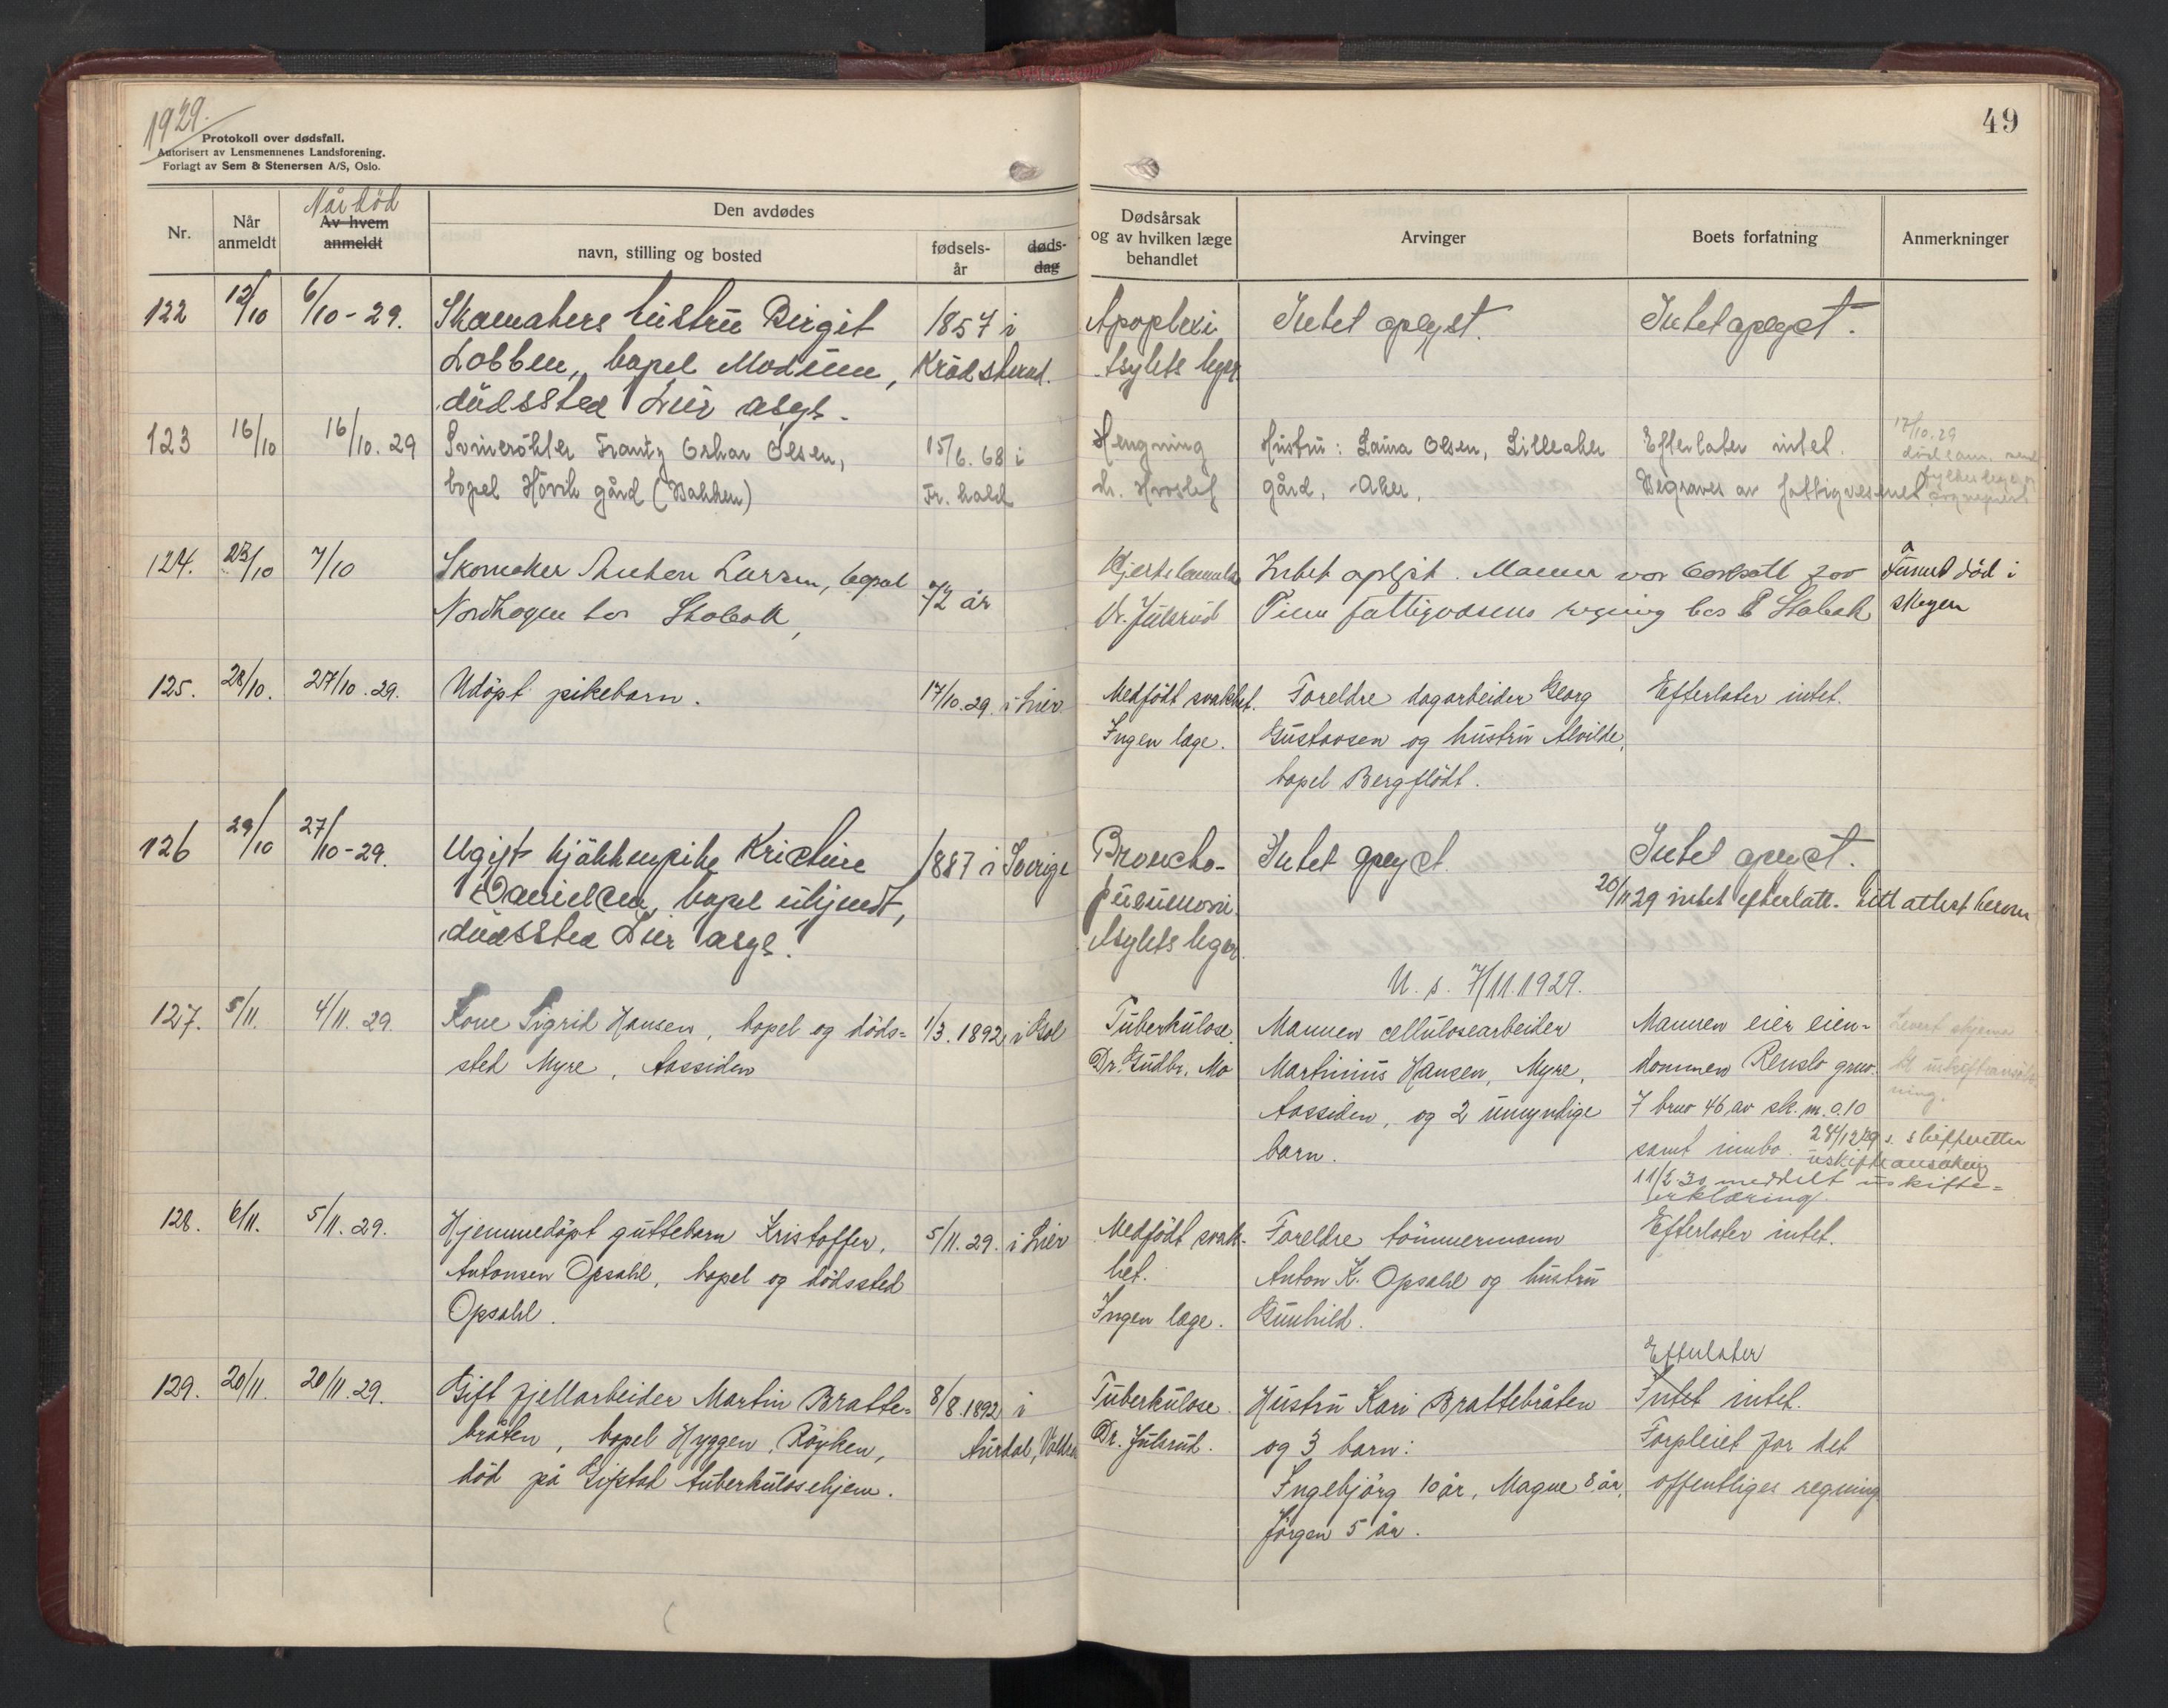 1929.
Protokoll over dødsfall.
Autorisert av Lensmennenes Landsforening.
Forlagt av Sem & Stenersen A/S, Oslo.
49
Nr.
Når anmeldt
Når död
Av hvem anmeldt
Den avdødes
navn, stilling og bosted
fødsels-
år
døds-
dag
Dødsårsak
og av hvilken læge
behandlet
Arvinger
Boets forfatning
Anmerkninger
122 12/10 6/10-29. Skomakers hustru Birgit 1857 i Apoplexi Intet oplyst. Intet oplyst.
Lobben, bopel Modum, Krödsherad. Asylets leger
dödssted Lier asyl.
123 16/10 16/10.29 Svinerökter Frantz Oskar Olsen, 15/6.68 i Hengning Hustru: Laura Olsen, Lilleaker Efterlater intet. 17/10.29
bopel Hövik gård (Bakken) Fr.hald dr. Hvoslef gård, Aker, Begraves av fattigvesenet
124. 23/10 7/10 Skomaker Anton Larsen, bopæl 72 år Hjertelammelse Intet oplyst. Manden var bortsatt for Funnet död i
Nordhagen hos Stabæk, Dr. Julsrud fattigvæsens regning hos Stabæk skogen
125. 28/10. 27/10.29. Udöpt pikebarn. 17/10.29. i Lier. Medfödt svakhet. Foreldre dagarbeider Georg Efterlater intet.
Ingen læge. Gustavsen og hustru Alvilde,
bopel Bergflödt.
126 29/10 27/10-29. Ugift kjökkenpike Kristine 1887 i Sverige Broncho- Intet oplyst. Intet oplyst.
Danielsen, bopel ukjendt, pneumoni. 20/11 29 intet efterlatt. Gitt attest herom
dödssted Lier asyl. Asylets leger.
U. s. 7/11.1929.
127. 5/11. 4/11.29. Kone Sigrid Hansen, bopel og döds= 1/3.1892 i Tuberkulose. Mannen cellulosearbeider Mannen eier eien= Levert skjema
sted Myre, Aassiden Dr. Gudbr. Mo Martinius Hansen, Myre, dommen Renslo gnr. til uskifteansök-
Aassiden, og 2 umyndige 7 bnr 46 av sk. m. 0.10 ning.
barn. samt innbo. 28/12 29 s. skifteretten
uskifteansøking
11/2-30 meddelt uskifte=
erklæring.
128. 6/11. 5/11.29. Hjemmedöpt guttebarn Kristoffer, 5/11.29. i Lier Medfödt svak- Foreldre tömmermann Efterlater intet.
Antonsen Opsahl, bopel og dödssted het. Anton K. Opsahl og hustru
Opsahl. Ingen læge. Gunhild.
Efterlater
129. 20/11. 20/11.29. Gift fjellarbeider Martin Bratte= 8/8.1892 i Tuberkulose. Hustru Kari Brattebråten Intet intet.
bråten, bopel Hyggen, Röyken, Aurdal, Valdres Dr. Julsrud. og 3 barn: Forpleiet for det
död på Gifstad tuberkulosehjem. Ingebjörg 10 år, Magne 8 år, offentliges regning
Jörgen 5 år.